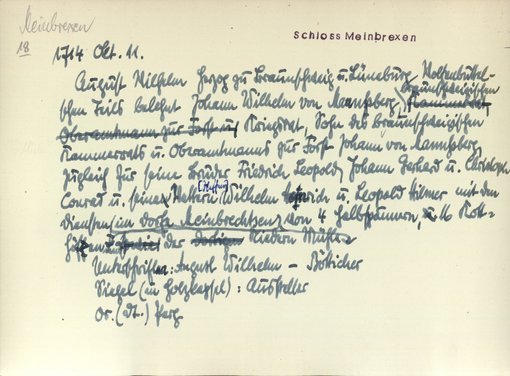 Meinbrexen
18
Schloss Meinbrexen
1714 Okt. 11.
August Wilhelm Herzog zu Braunschweig u. Lüneburg Wolfenbüttel-
schen Teils belehnt Johann Wilhelm von Mansberg, braunschweigischen
Oberamtmann zur Forst u Kriegsrat, Sohn des braunschweigischen
Kammerrats u. Oberamtmanns zur Forst Johann von Mansberg,
zugleich für seine Brüder Friedrich Leopold, Johann Gerhard u. Christoph
Conrad u. seine Vettern Wilhelm Heinrich u. Leopold Hilmer mit den
Diensten im Dorfe Meinbrechtsen von 4 Halbspännern, 16 Kott-
höfen der dortigen Niedern Mühle
Unterschriften: August Wilhelm – Bötticher
Siegel (in Holzkapsel): Aussteller
Or. (dt.) Perg.